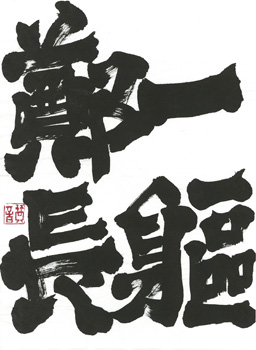 一軀
鄭長